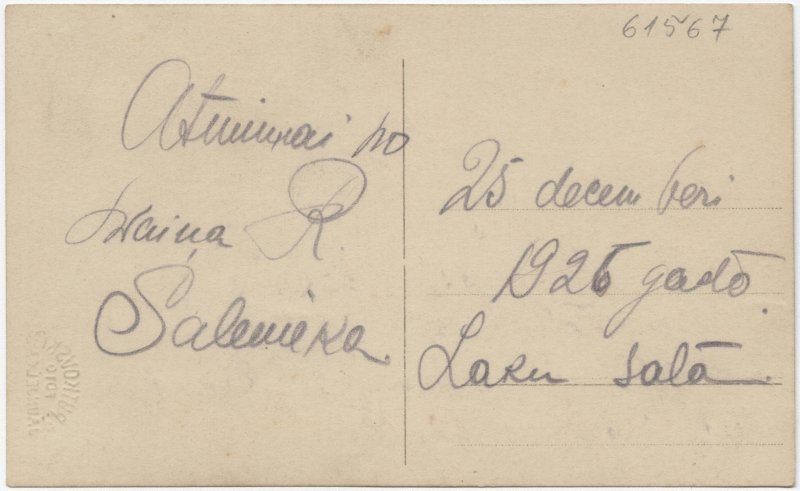 61567
Atmiņai no
Svaiņa R.
Salenieka.
25 decemberi
1926 gadō.
Laku salā.